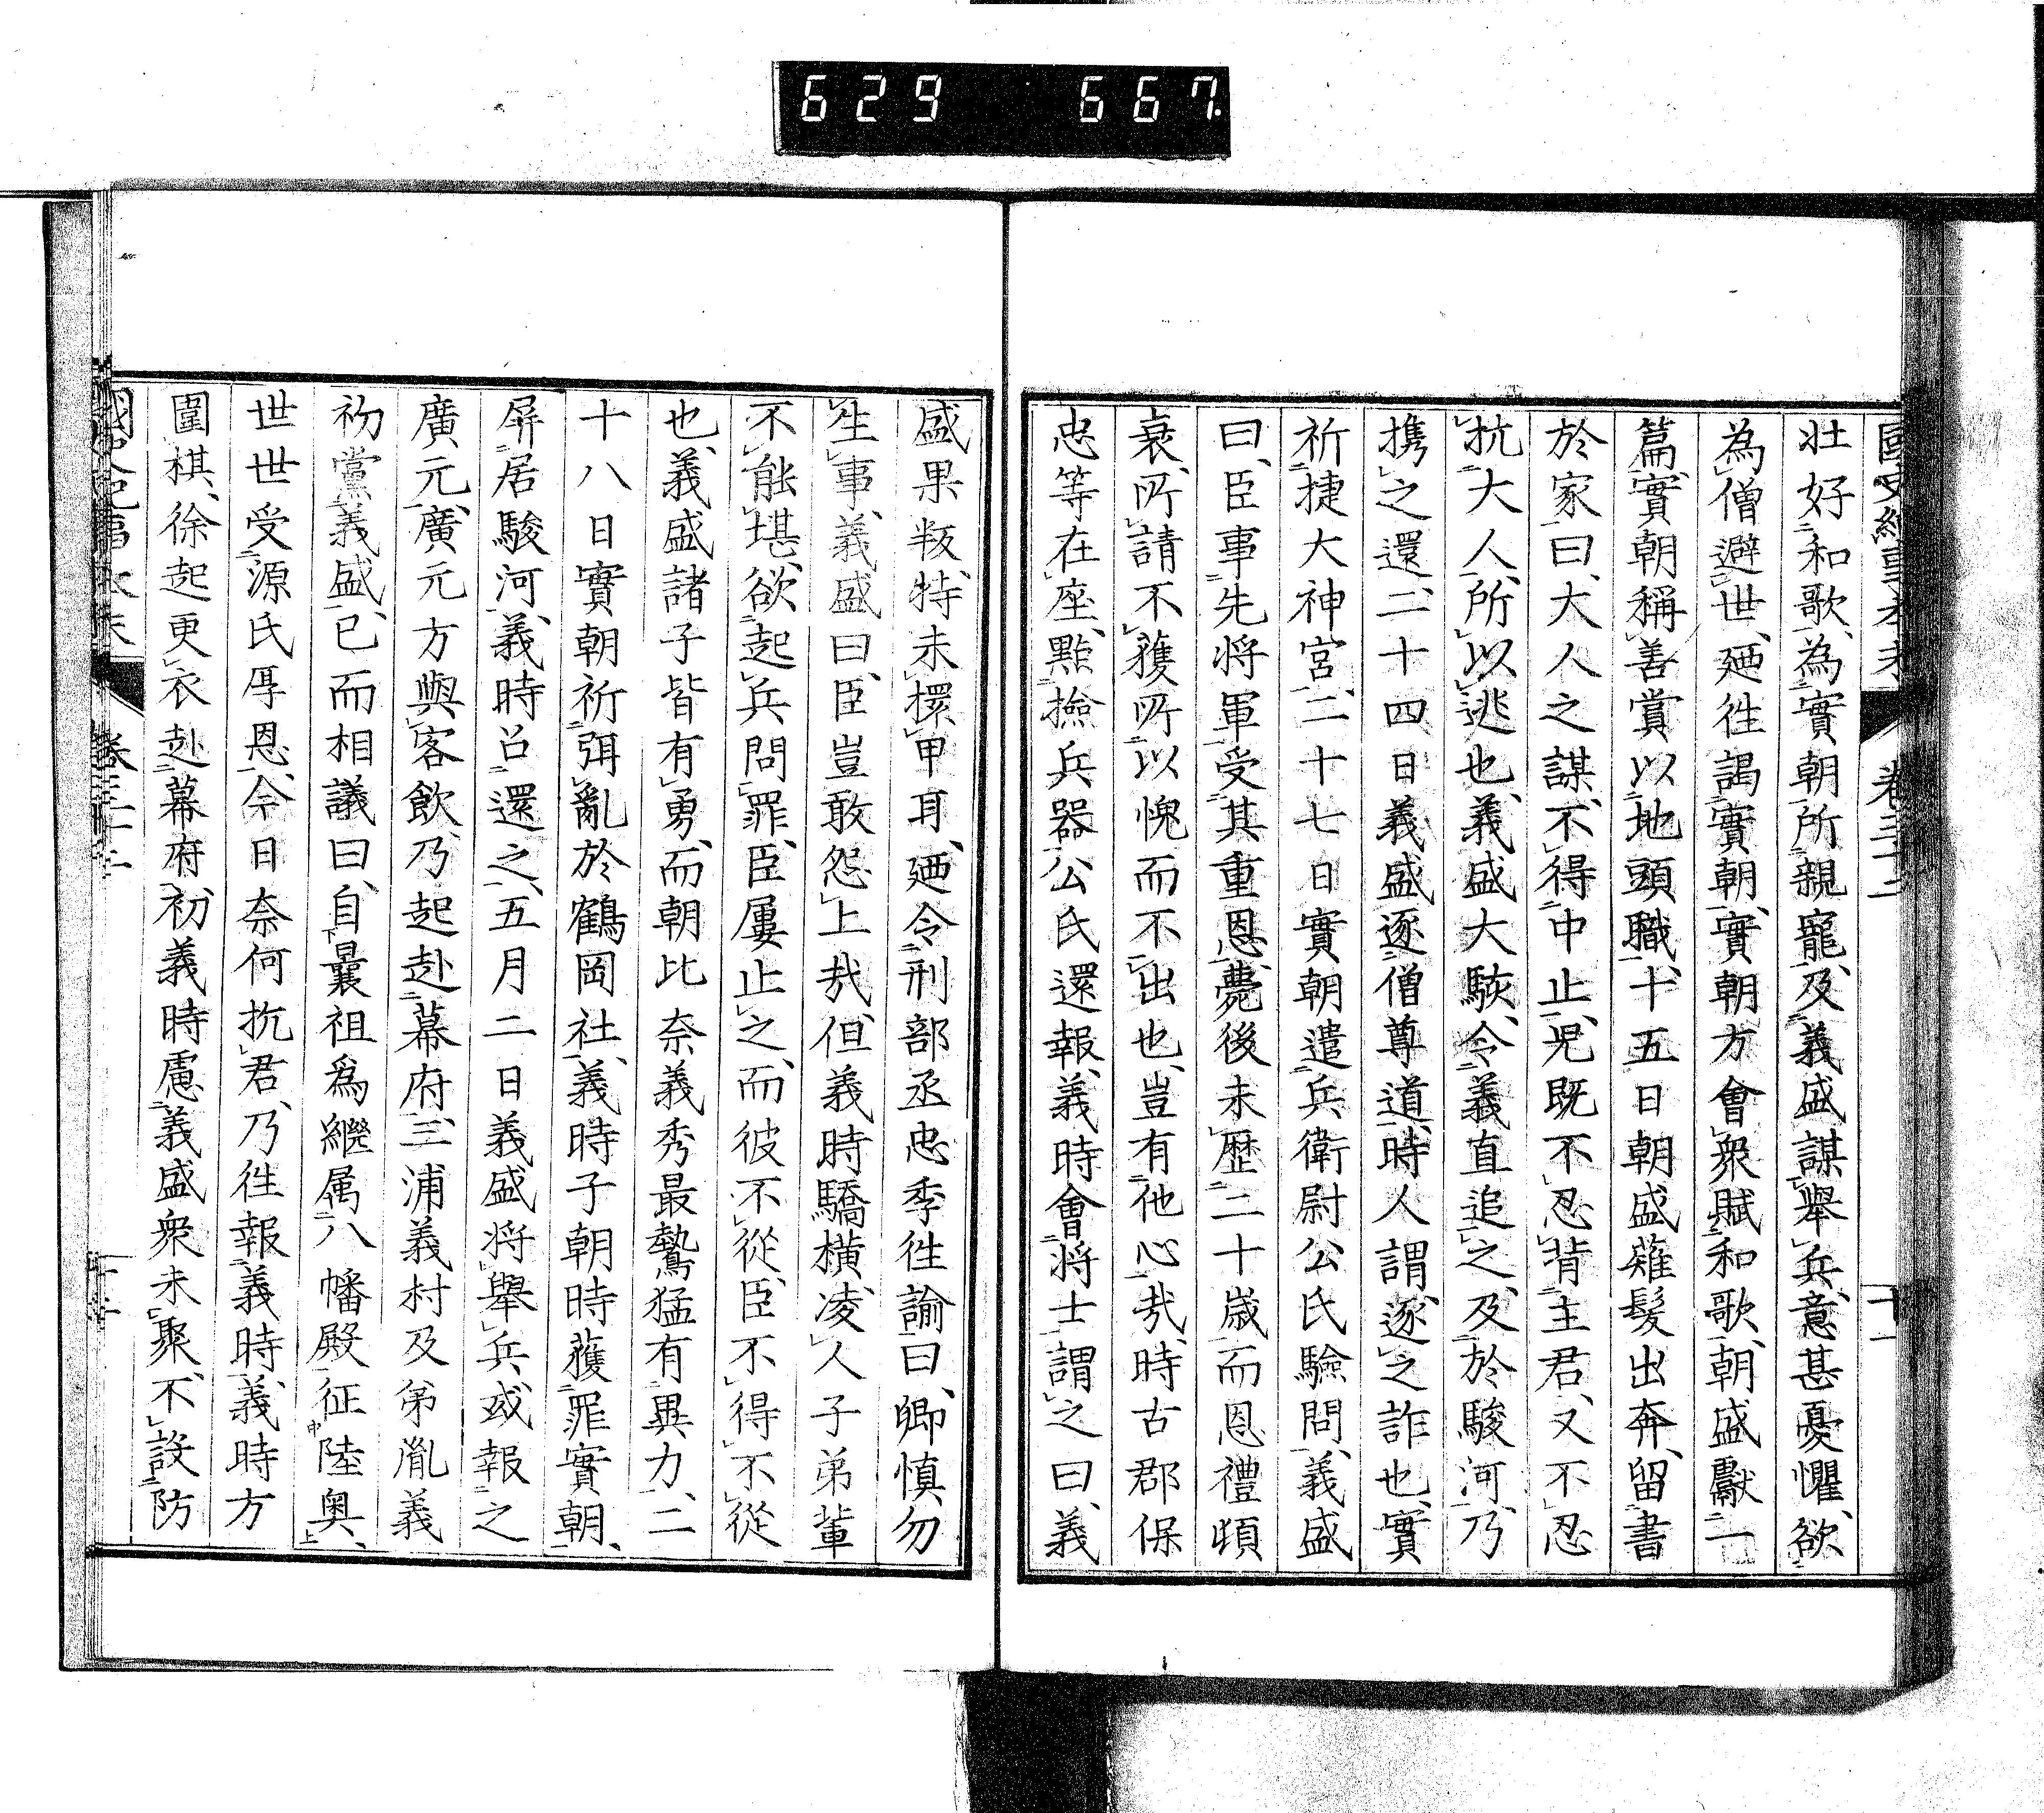 629 667
國史紀事本末 卷三十二 十一
壮好和歌、為實朝所親寵、及義盛謀舉兵、意甚憂懼、欲
為僧避世、廼徃謁實朝、實朝方會衆賦和歌、朝盛獻一
篇、實朝稱善賞以地頭職、十五日朝盛薙髮出奔、留書
於家曰、大人之謀、不得中止、児既不忍背主君、又不忍
抗大人、所以逃也、義盛大駭、令義直追之、及於駿河、乃
携之還、二十四日義盛逐僧尊道、時人謂、逐之詐也、實
祈捷大神宮、二十七日實朝遣兵衛尉公氏驗問、義盛
曰、臣事先将軍、受其重恩、薨後未歴二十歳、而恩禮頓
衰、所請不獲、所以愧而不出也、豈有他心哉、時古郡保
忠等在座、點撿兵器、公氏還報、義時會将士謂之曰、義
盛果叛、特未擐甲耳、廼令刑部丞忠季徃諭曰、卿慎勿
生事、義盛曰、臣豈敢怨上哉、但義時驕横、凌人子弟輩
不能堪、欲起兵問罪、臣屢止之、而彼不從、臣不得不從
也、義盛諸子皆有勇、而朝比奈義秀最鷙猛有異力、二
十八日實朝祈弭亂於鶴岡社、義時子朝時獲罪實朝、
屏居駿河、義時召還之、五月二日義盛将舉兵、或報之
廣元、廣元方與客飲、乃起赴幕府、三浦義村及弟胤義
初黨義盛、已而相議曰、自曩祖為繼属八幡殿征陸奥、
世世受源氏厚恩、今日奈何抗君、乃徃報義時、義時方
圍棋、徐起更衣赴幕府、初義時慮義盛衆未聚、不設防
國史紀事本末 卷三十二